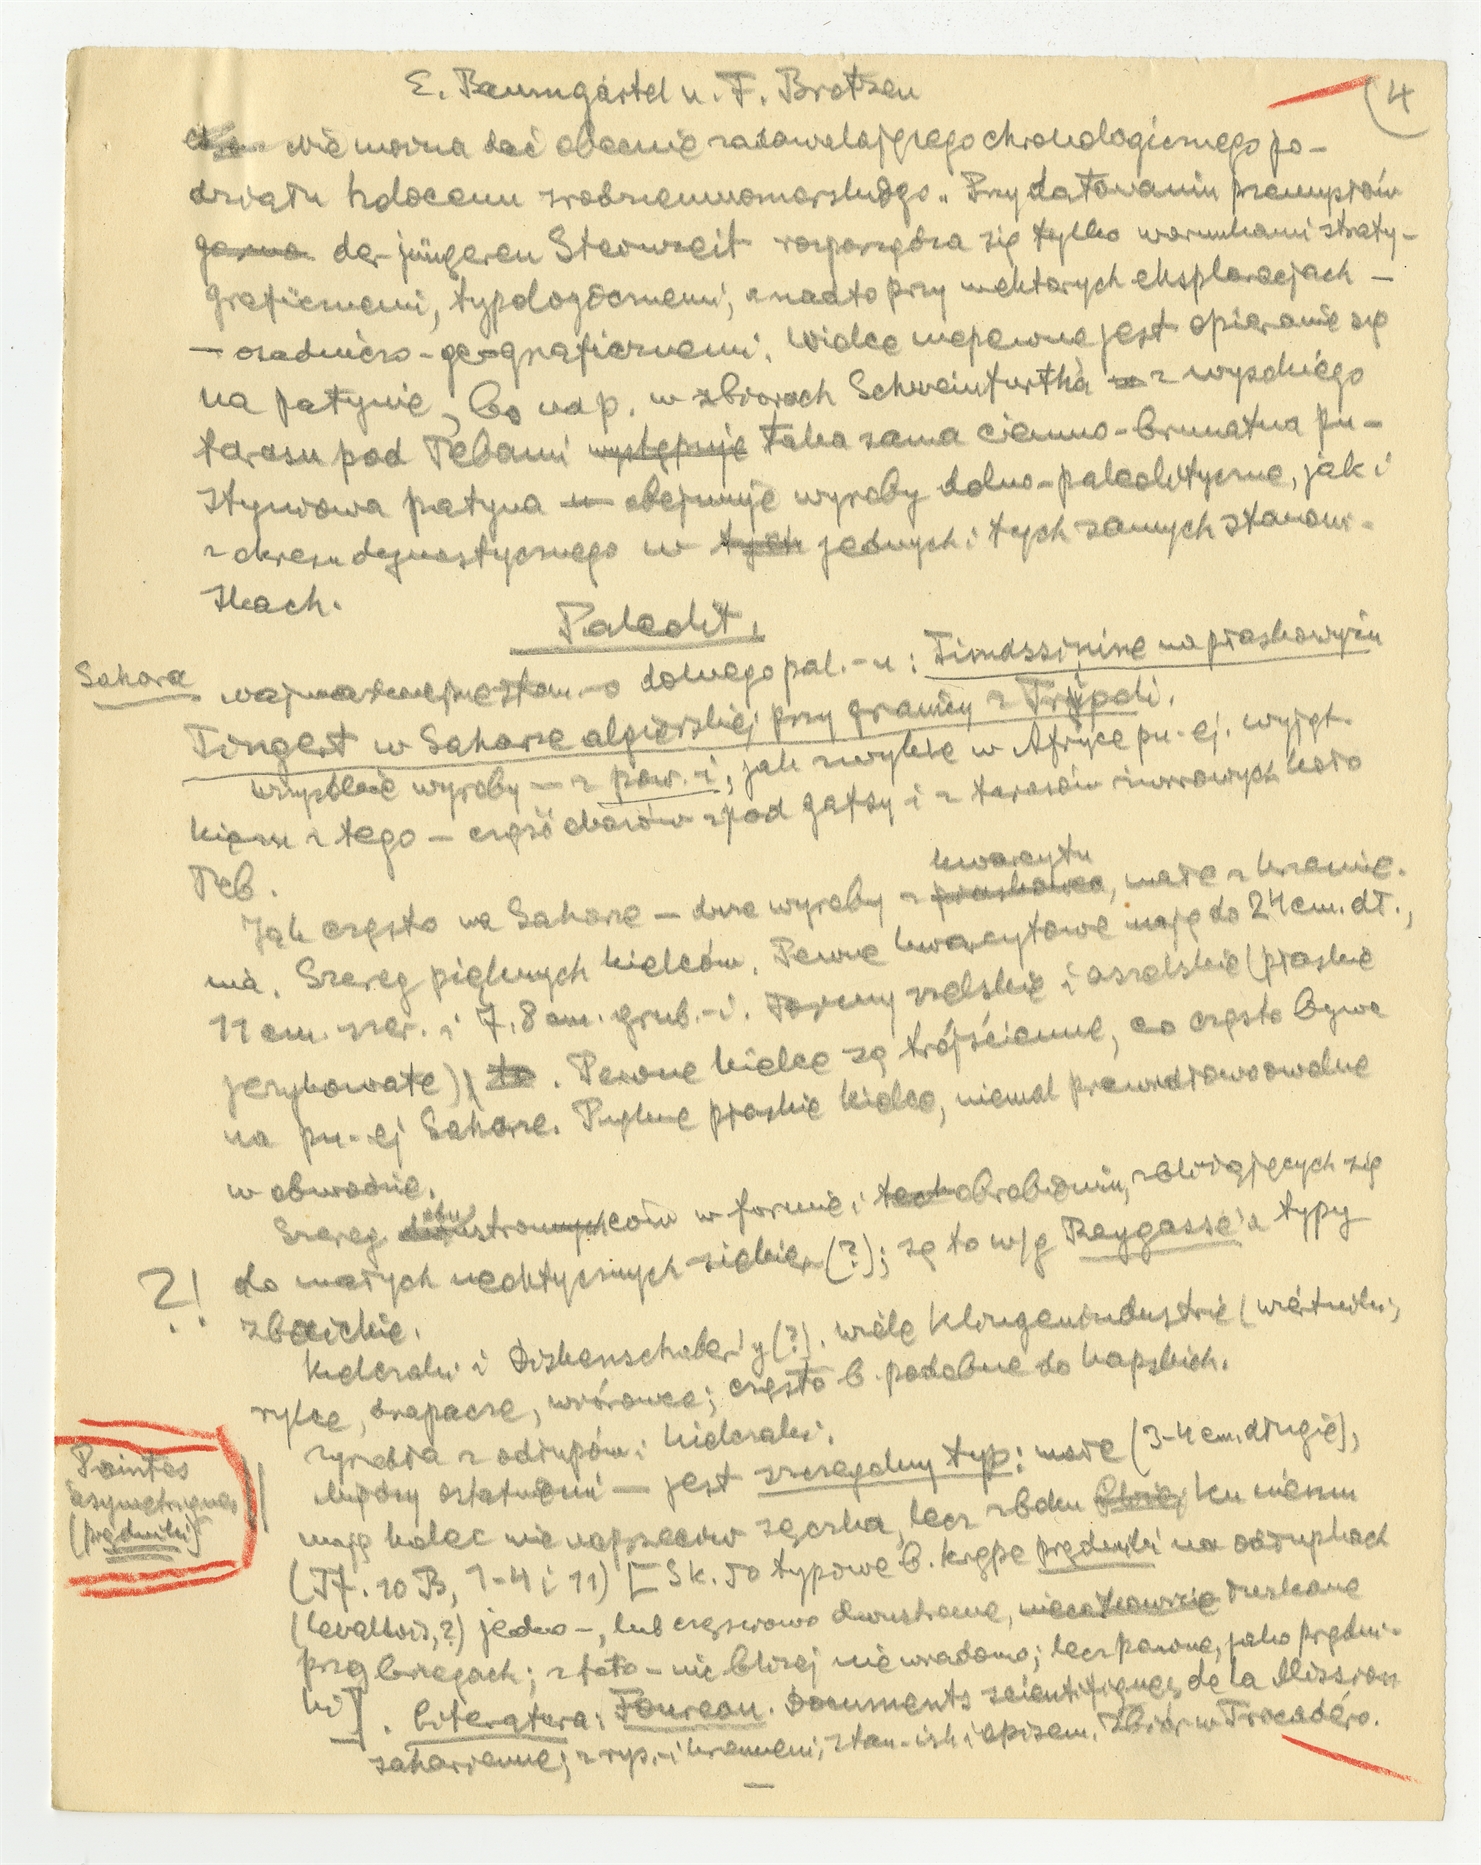 E. Baumgärtel u. F. Brotzen
4
nie można dać obecnie zadawalającego chronologicznego po-
działu holocenu śródziemnomorskiego. Przy datowaniu przemysłów
der jüngeren Steinzeit rozporządza się tylko warunkami straty-
graficznemi, typologicznemi, a nadto przy niektórych eksploracjach -
- osadniczo-geograficznemi. Wielce niepewne jest opieranie się
na patynie, bo np. w zbiorach Schweinfurtha z wysokiego
tarasu pod Tebami występuje taka sama ciemno-brunatna pu-
styniowa patyna obejmuje wyroby dolno-paleolityczne, jak i
z okresu dynastycznego w tych jednych i tych samych stanowi-
skach.
Paleolit.
Sahara
najważniejsze stan.-o dolnego pal.-u: Timassinine na płaskowyżu
Tingert w Saharze algierskiej przy granicy z Tripoli.
Wszystkie wyroby - z pow.-i, jak zwykle w Afryce pn.-ej. Wyjąt-
kiem z tego - część okazów z pod Gafsy i z tarasów żwirowych koło
Teb.
kwarcytu
Jak często na Saharze - duże wyroby z piaskowca, małe z krzemie-
nia. Szereg pięknych kielców. Pewne kwarcytowe mają do 24 cm. dł.,
11 cm. szer. i 7,8 cm. grub.-i. Formy szelskie i aszelskie (płaskie
językowate) to. Pewne kielce są trójścienne, co często bywa
na pn.-ej Saharze. Piękne płaskie kielce, niemal prawidłowo owalne
w obwodzie.
Szereg w formie i tech obrobieniu, zbliżających się
?! do małych neolitycznych siekier (?); są to w/g Reygasse'a typy
sbaickie.
Kielczaki i Diskenschaber'y (?). Wiele Klingenindustrie (wiertniki,
rylce, drapacze, wiórowce; często b. podobne do kapskich.
zgrzebła z odłupów i kielczaki.
Pointes
asymetriques
(prądniki)
Między ostatniemi - jest szczególny typ: małe (3-4 cm. długie),
mają kolec nie naprzeciw sęczka, lecz z boku ku niemu
(Tf. 10 B, 1-4 i 11) [Sk. To typowe b. krępe prądniki na odłupkach
(levallois,?) jedno-, lub częściowo dwustronne, łuskane
przy brzegach; z tła - nic bliżej nie wiadomo; lecz pewne, jako prądni-
ki]. Literatura: Foureau. Documents scientifiques de la Mission
saharienne; z ryc.-i krzemieni, stan.-isk i opisem. Zbiór w Trocadéro.